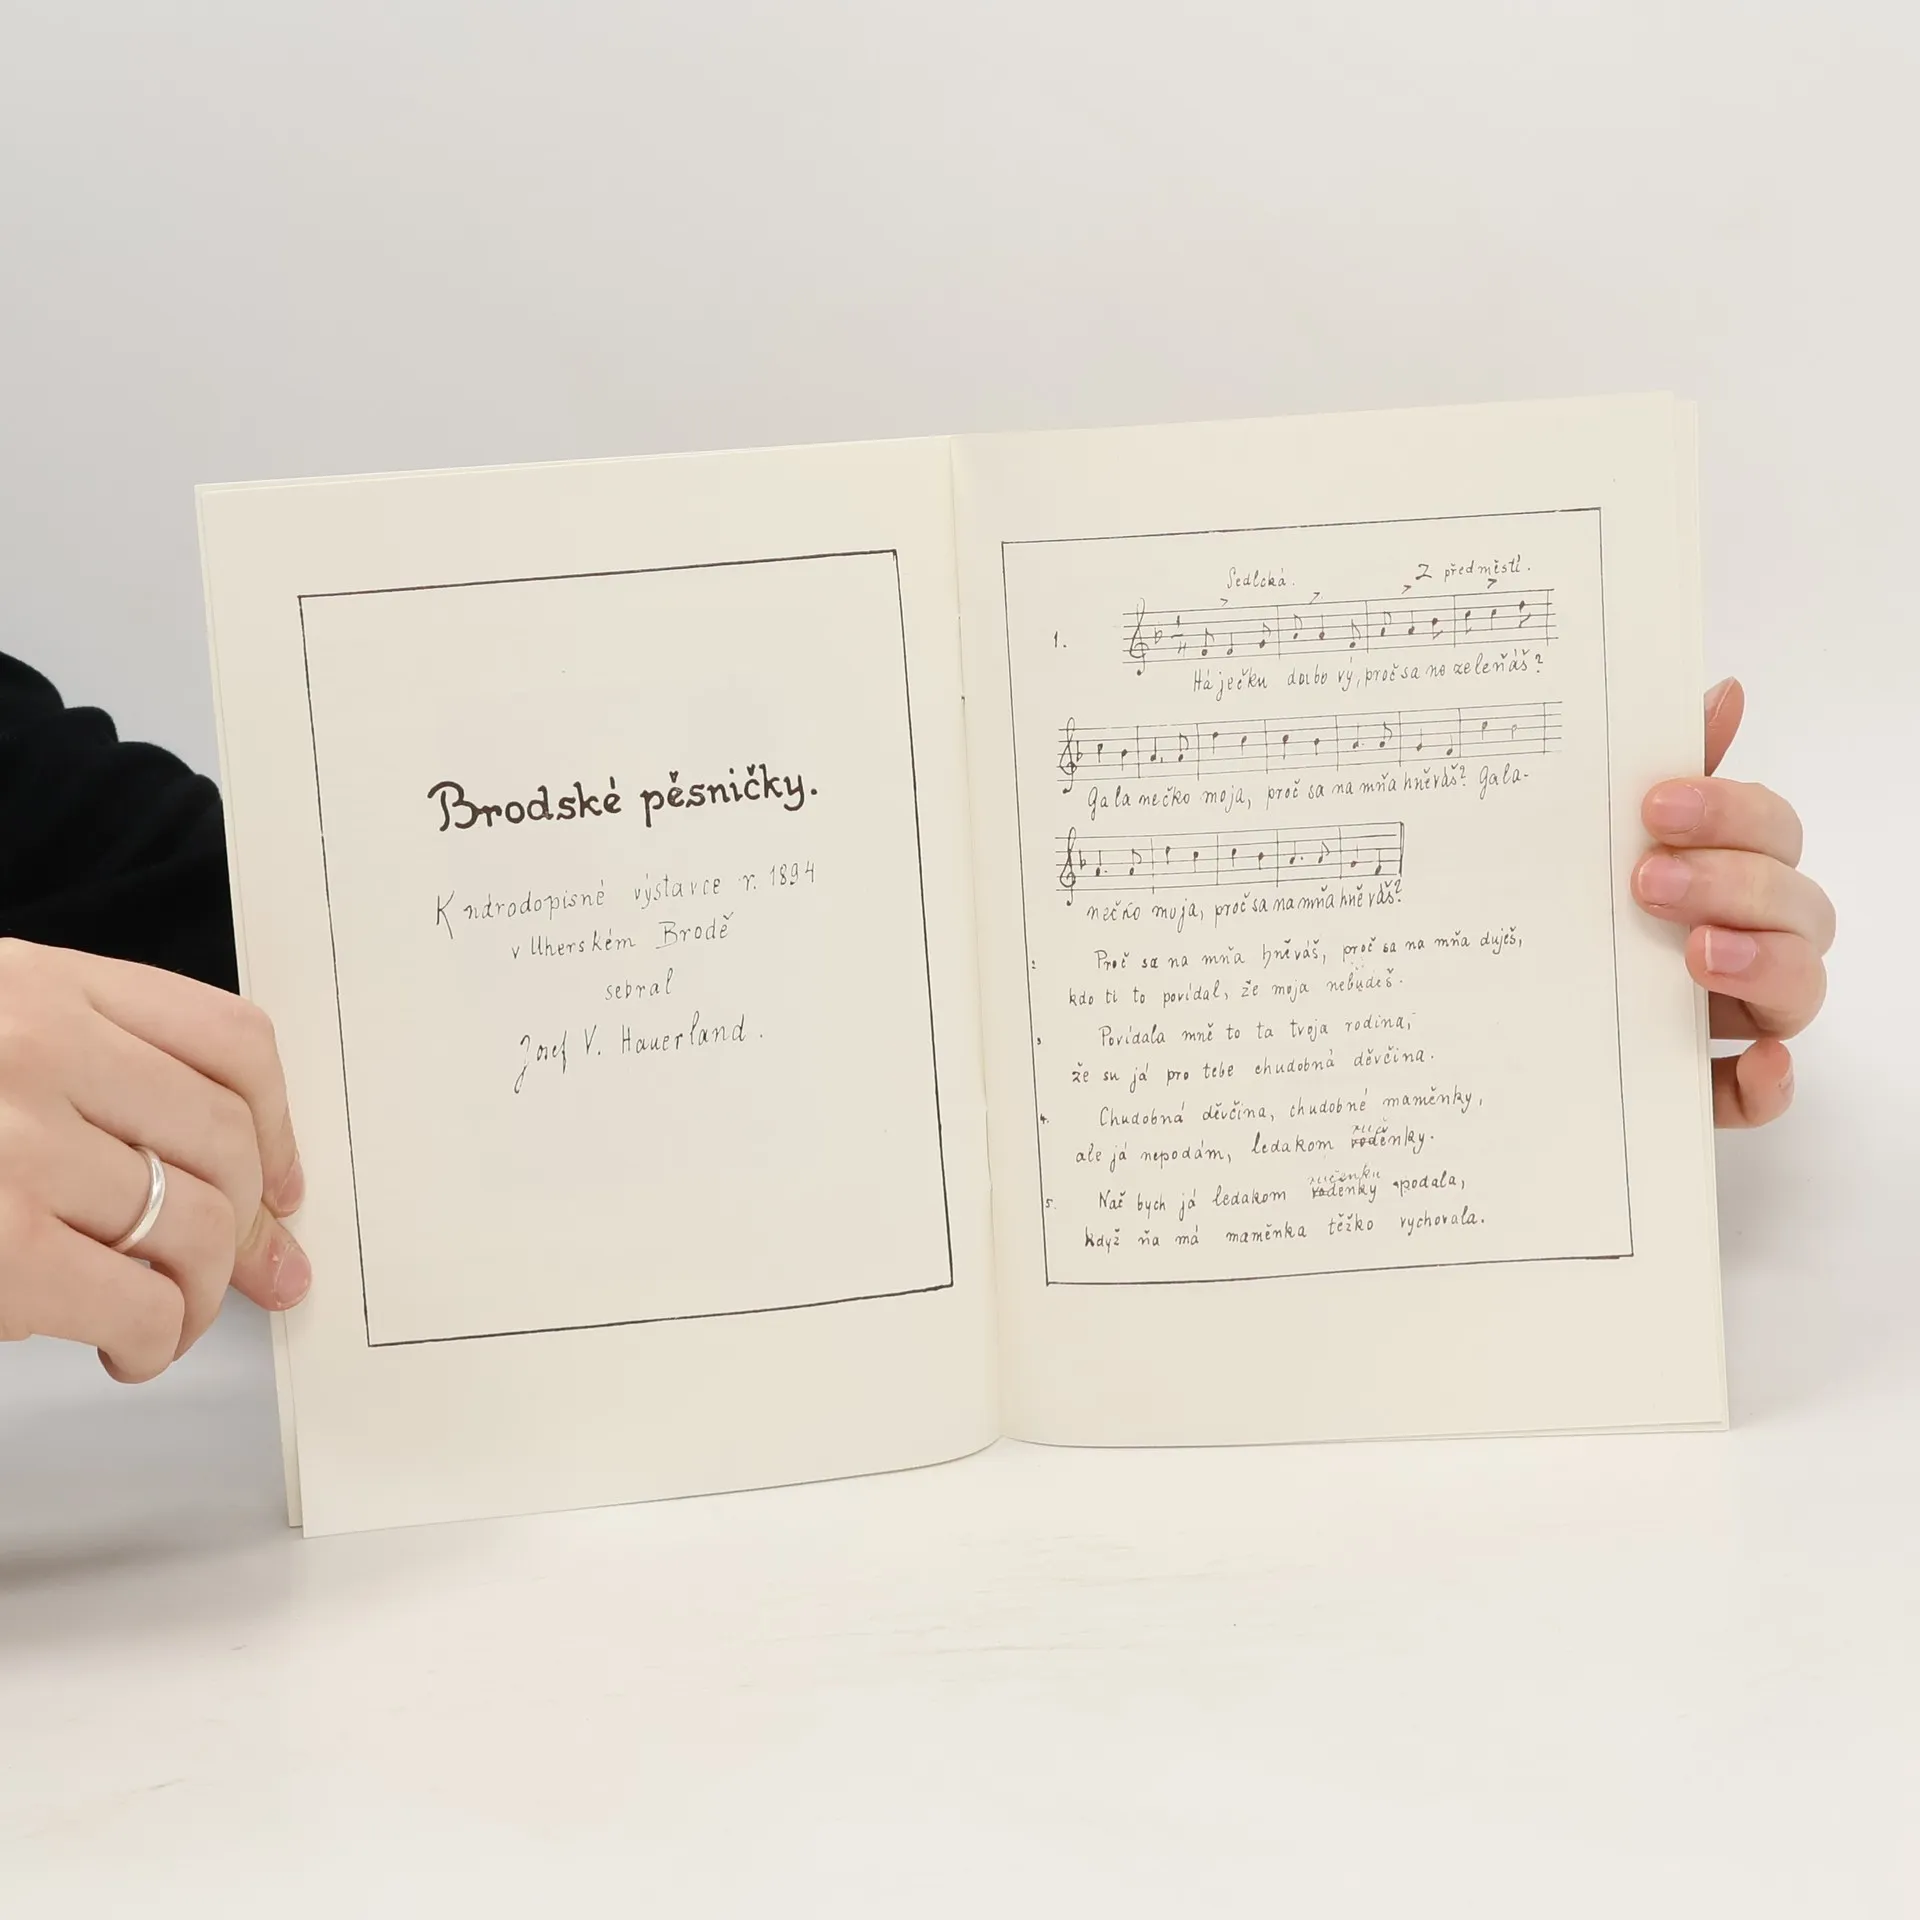 Brodské pěsničky.
K národopisné výstavce r. 1894
v Uherském Brodě
sebral
Josef V. Hauerland.
Sedlcká. Z předměstí.
1.
Há ječku dubo vý, proč sa ne zeleňáš?
Ga la nečko moja, proč sa na mňa hněváš? Gala-
nečko moja, proč sa na mňa hně váš?
2 Proč sa na mňa hněváš, proč sa na mňa duješ,
kdo ti to povídal, že moja nebudeš.
3 Povídala mně to ta tvoja rodina,
že su já pro tebe chudobná děvčina.
4. Chudobná děvčina, chudobné maměnky,
ale já nepodám, ledakom ručěnky.
5. Nač bych já ledakom ručenku podala,
když ňa má maměnka těžko vychovala.